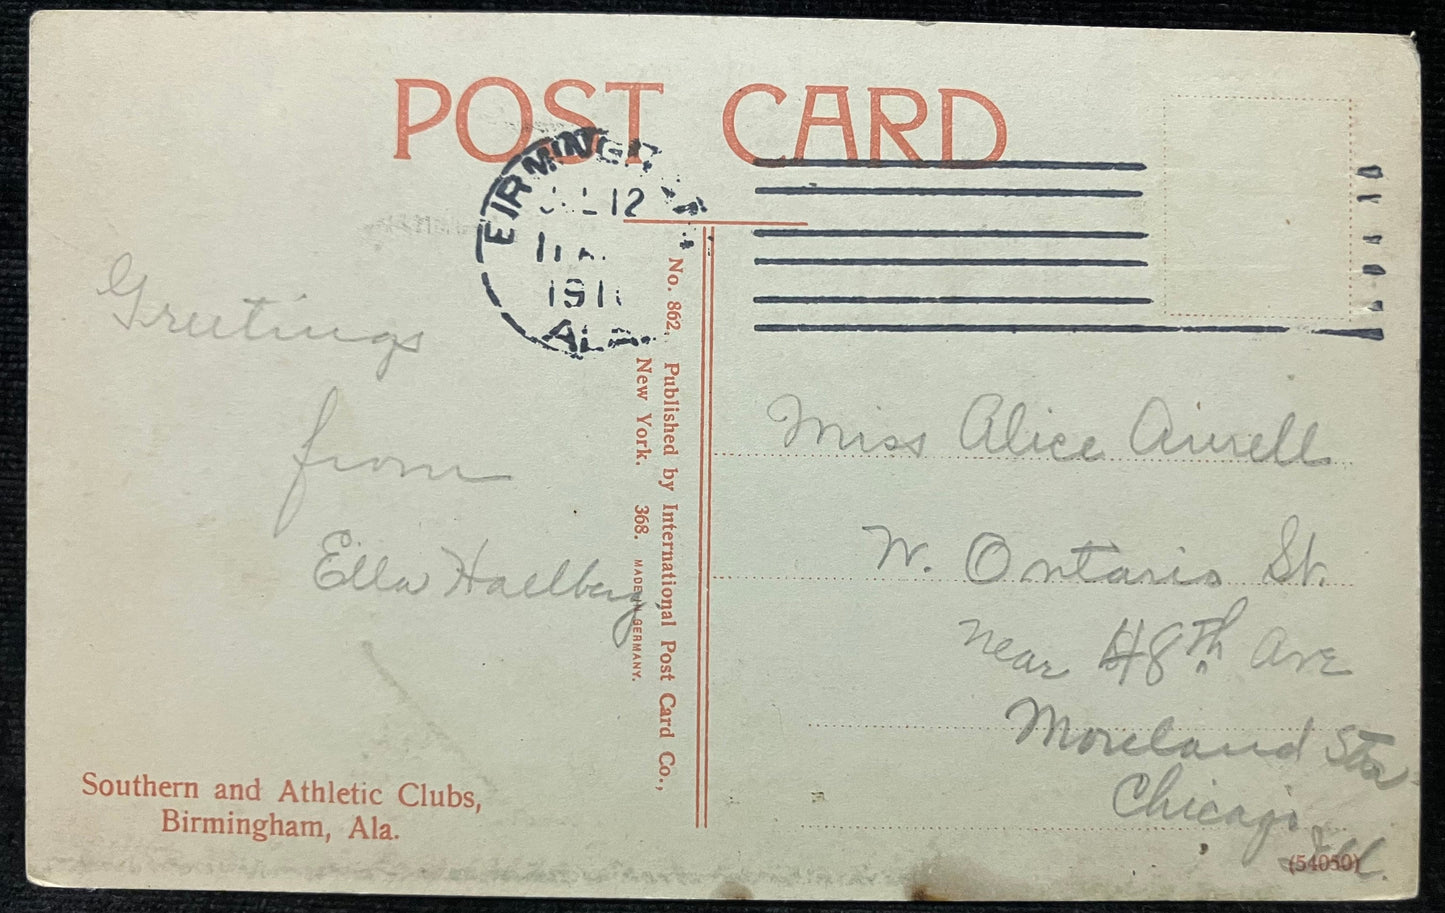 POST CARD
BIRMINGHAM
12
191
ALA.
Greetings
from
Ella Haellberg
No. 862. Published by International Post Card Co.,
New York. 368. MADE IN GERMANY.
Miss Alice
W. Ontario St.
near 48th Ave
Moreland Sta
Chicago
Ill.
Southern and Athletic Clubs,
Birmingham, Ala.
(54050)